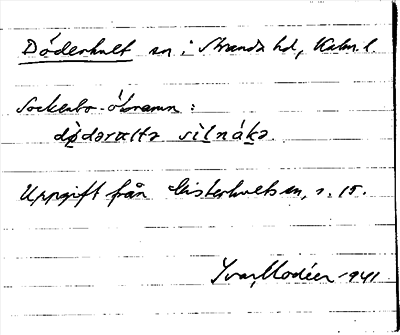 Döderhult sn i Stranda hd, Kalm. l.
Sockenbo-öknamn:
dø̀dəraltə sìlnákə.
Uppgift från Misterhults sn, s. 15.
Yvar Modéer 1941